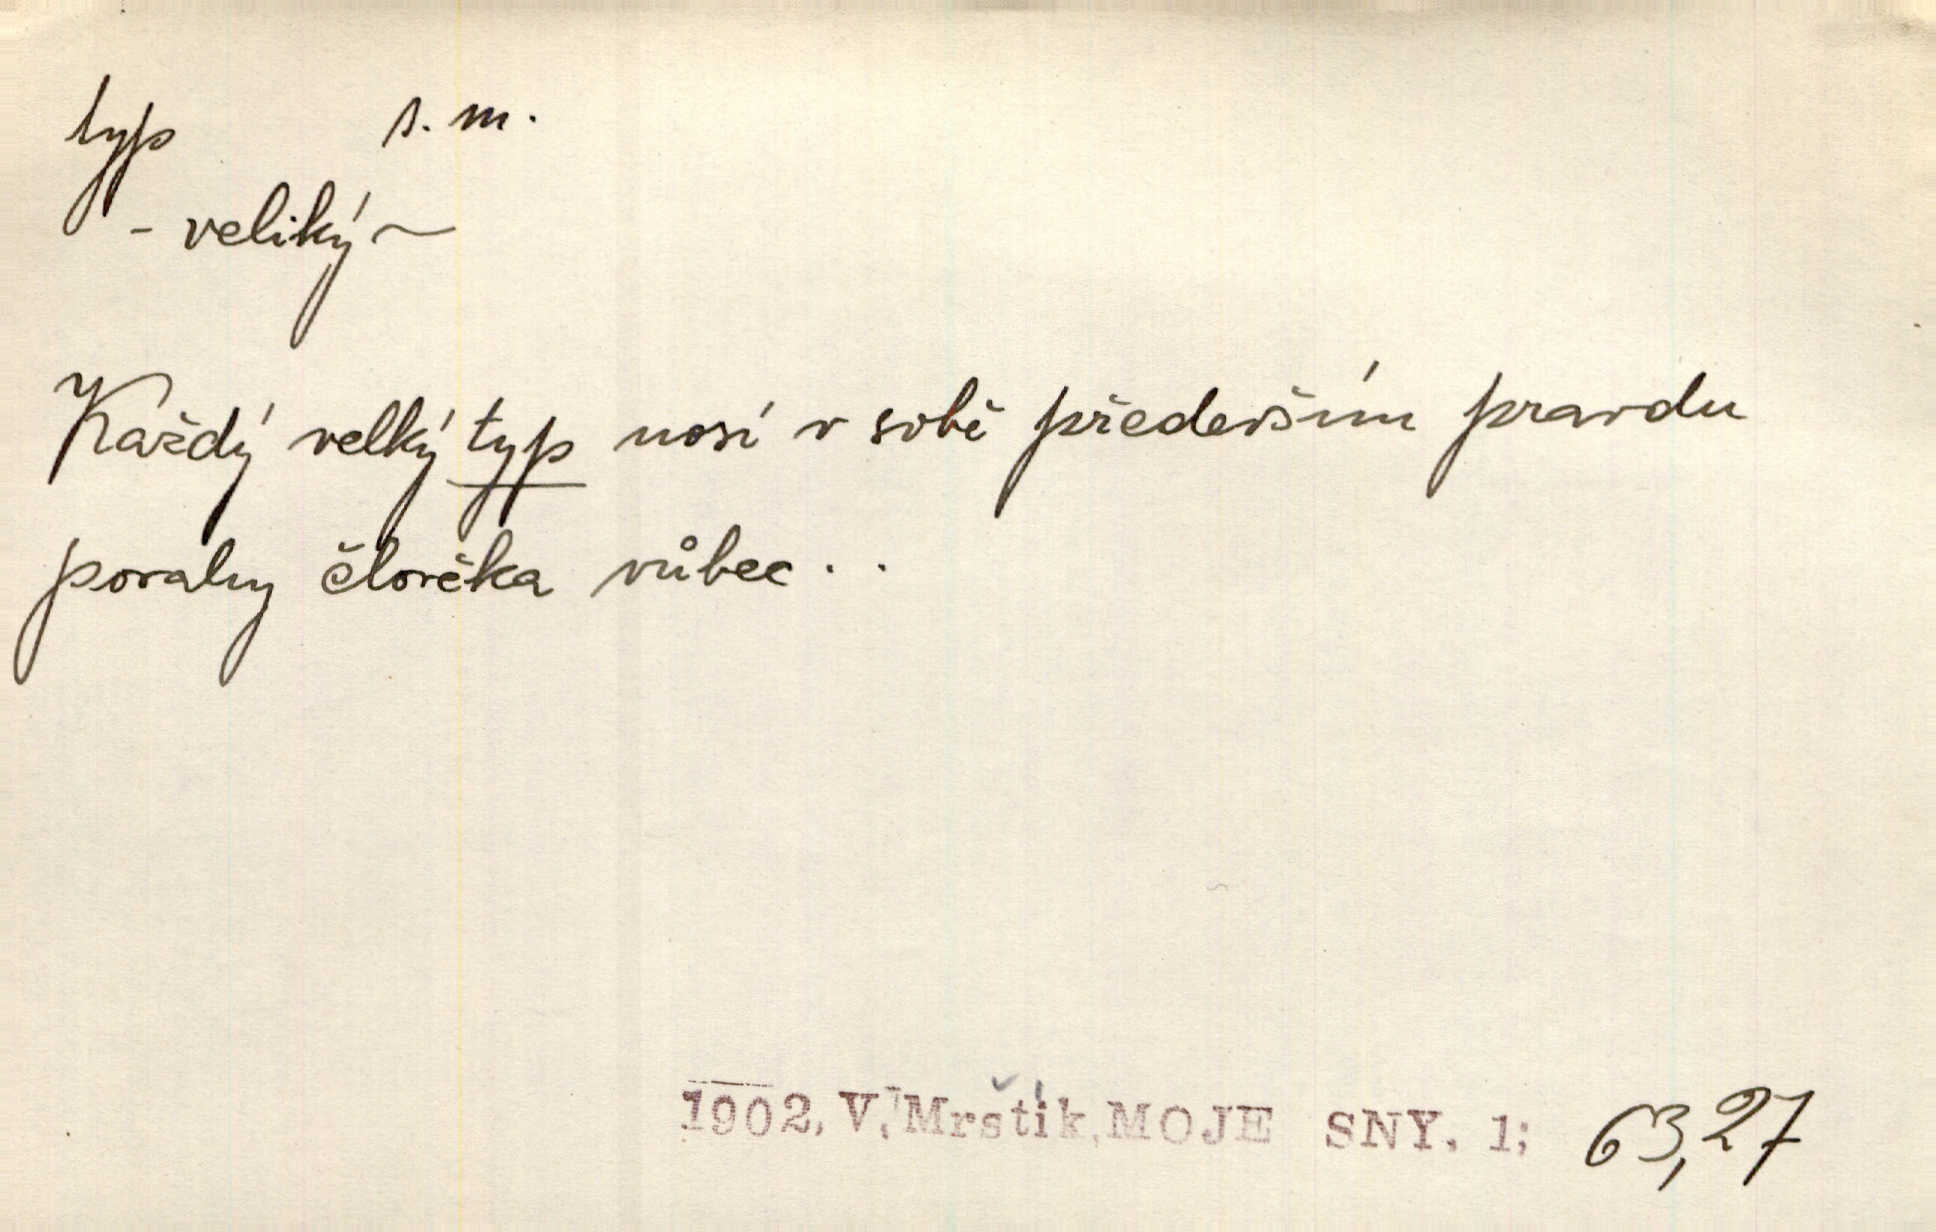 typ s. m.
- veliký ~
Každý velký typ nosí v sobě především pravdu
povahy člověka vůbec . .
1902, V. Mrštík, MOJE SNY. 1; 63,27